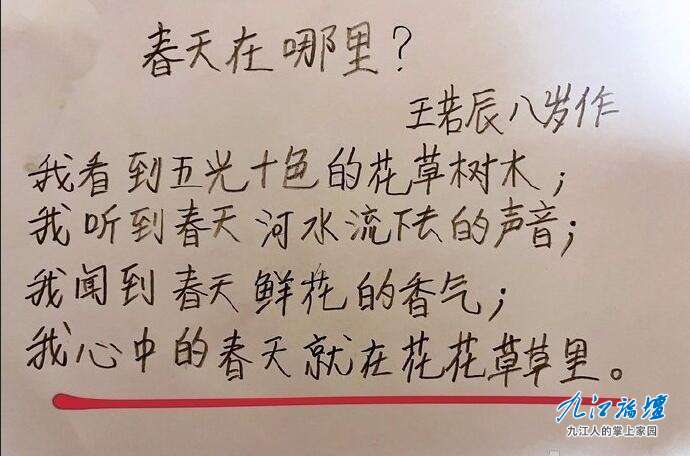 春天在哪里?
王若辰八岁作
我看到五光十色的花草树木;
我听到春天河水流下去的声音;
我闻到春天鲜花的香气;
我心中的春天就在花花草草里。
九江论坛
九江人的掌上家园